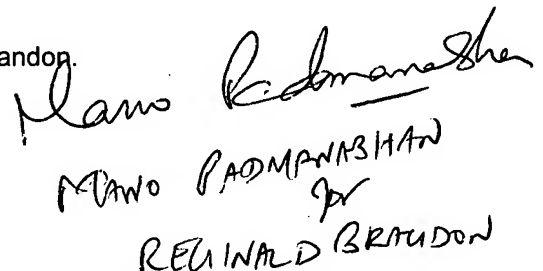 andon.
Mano Padmanabhan
MANO PADMANABHAN
for
REGINALD BRAUDON